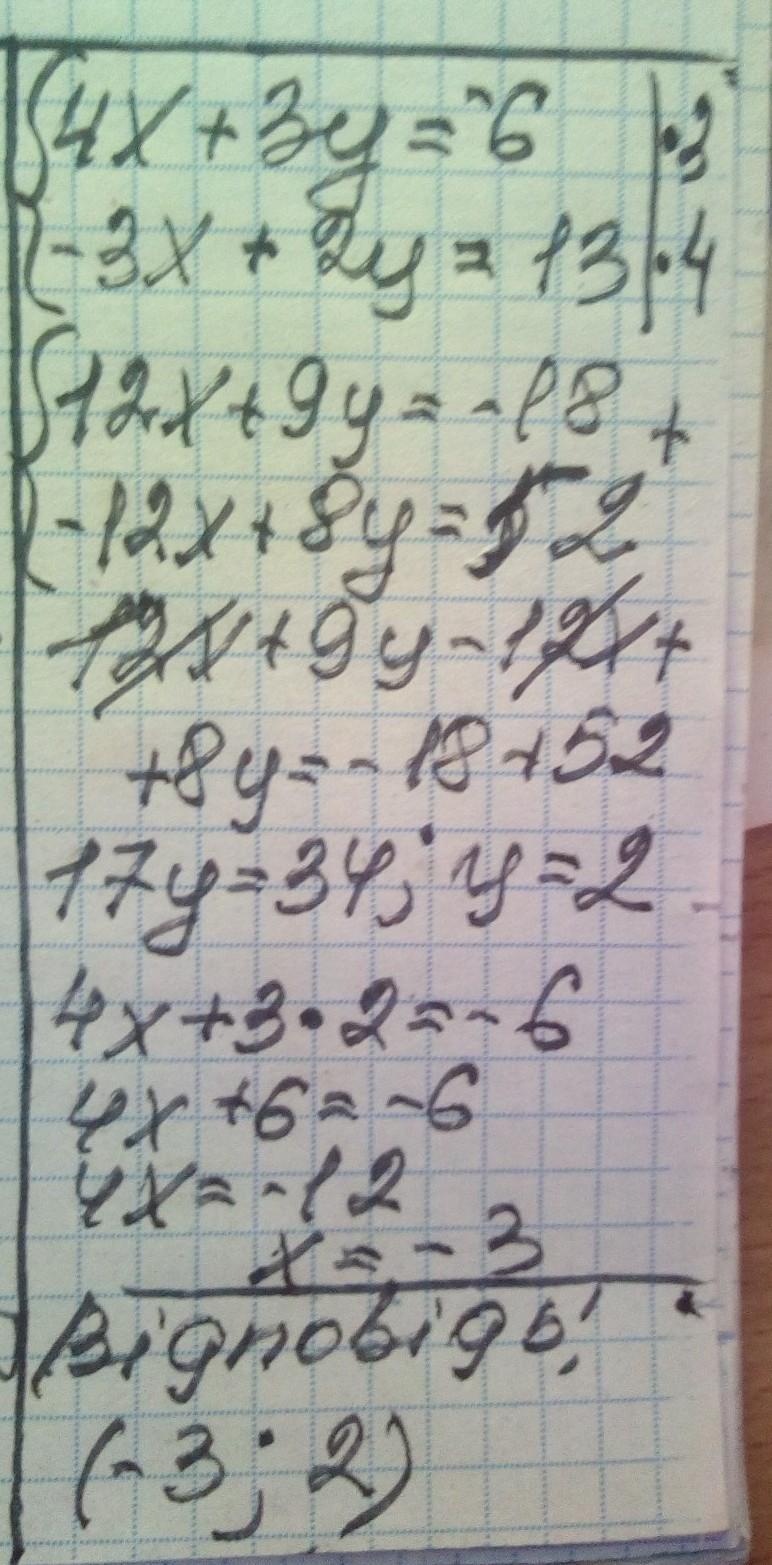 {4x + 3y = -6 | ·3
{-3x + 2y = 13 | ·4
{12x + 9y = -18 +
{-12x + 8y = 52
12x + 9y - 12x +
+8y = -18 + 52
17y = 34; y = 2
4x + 3·2 = -6
4x + 6 = -6
4x = -12
x = -3
Відповідь:
(-3; 2)